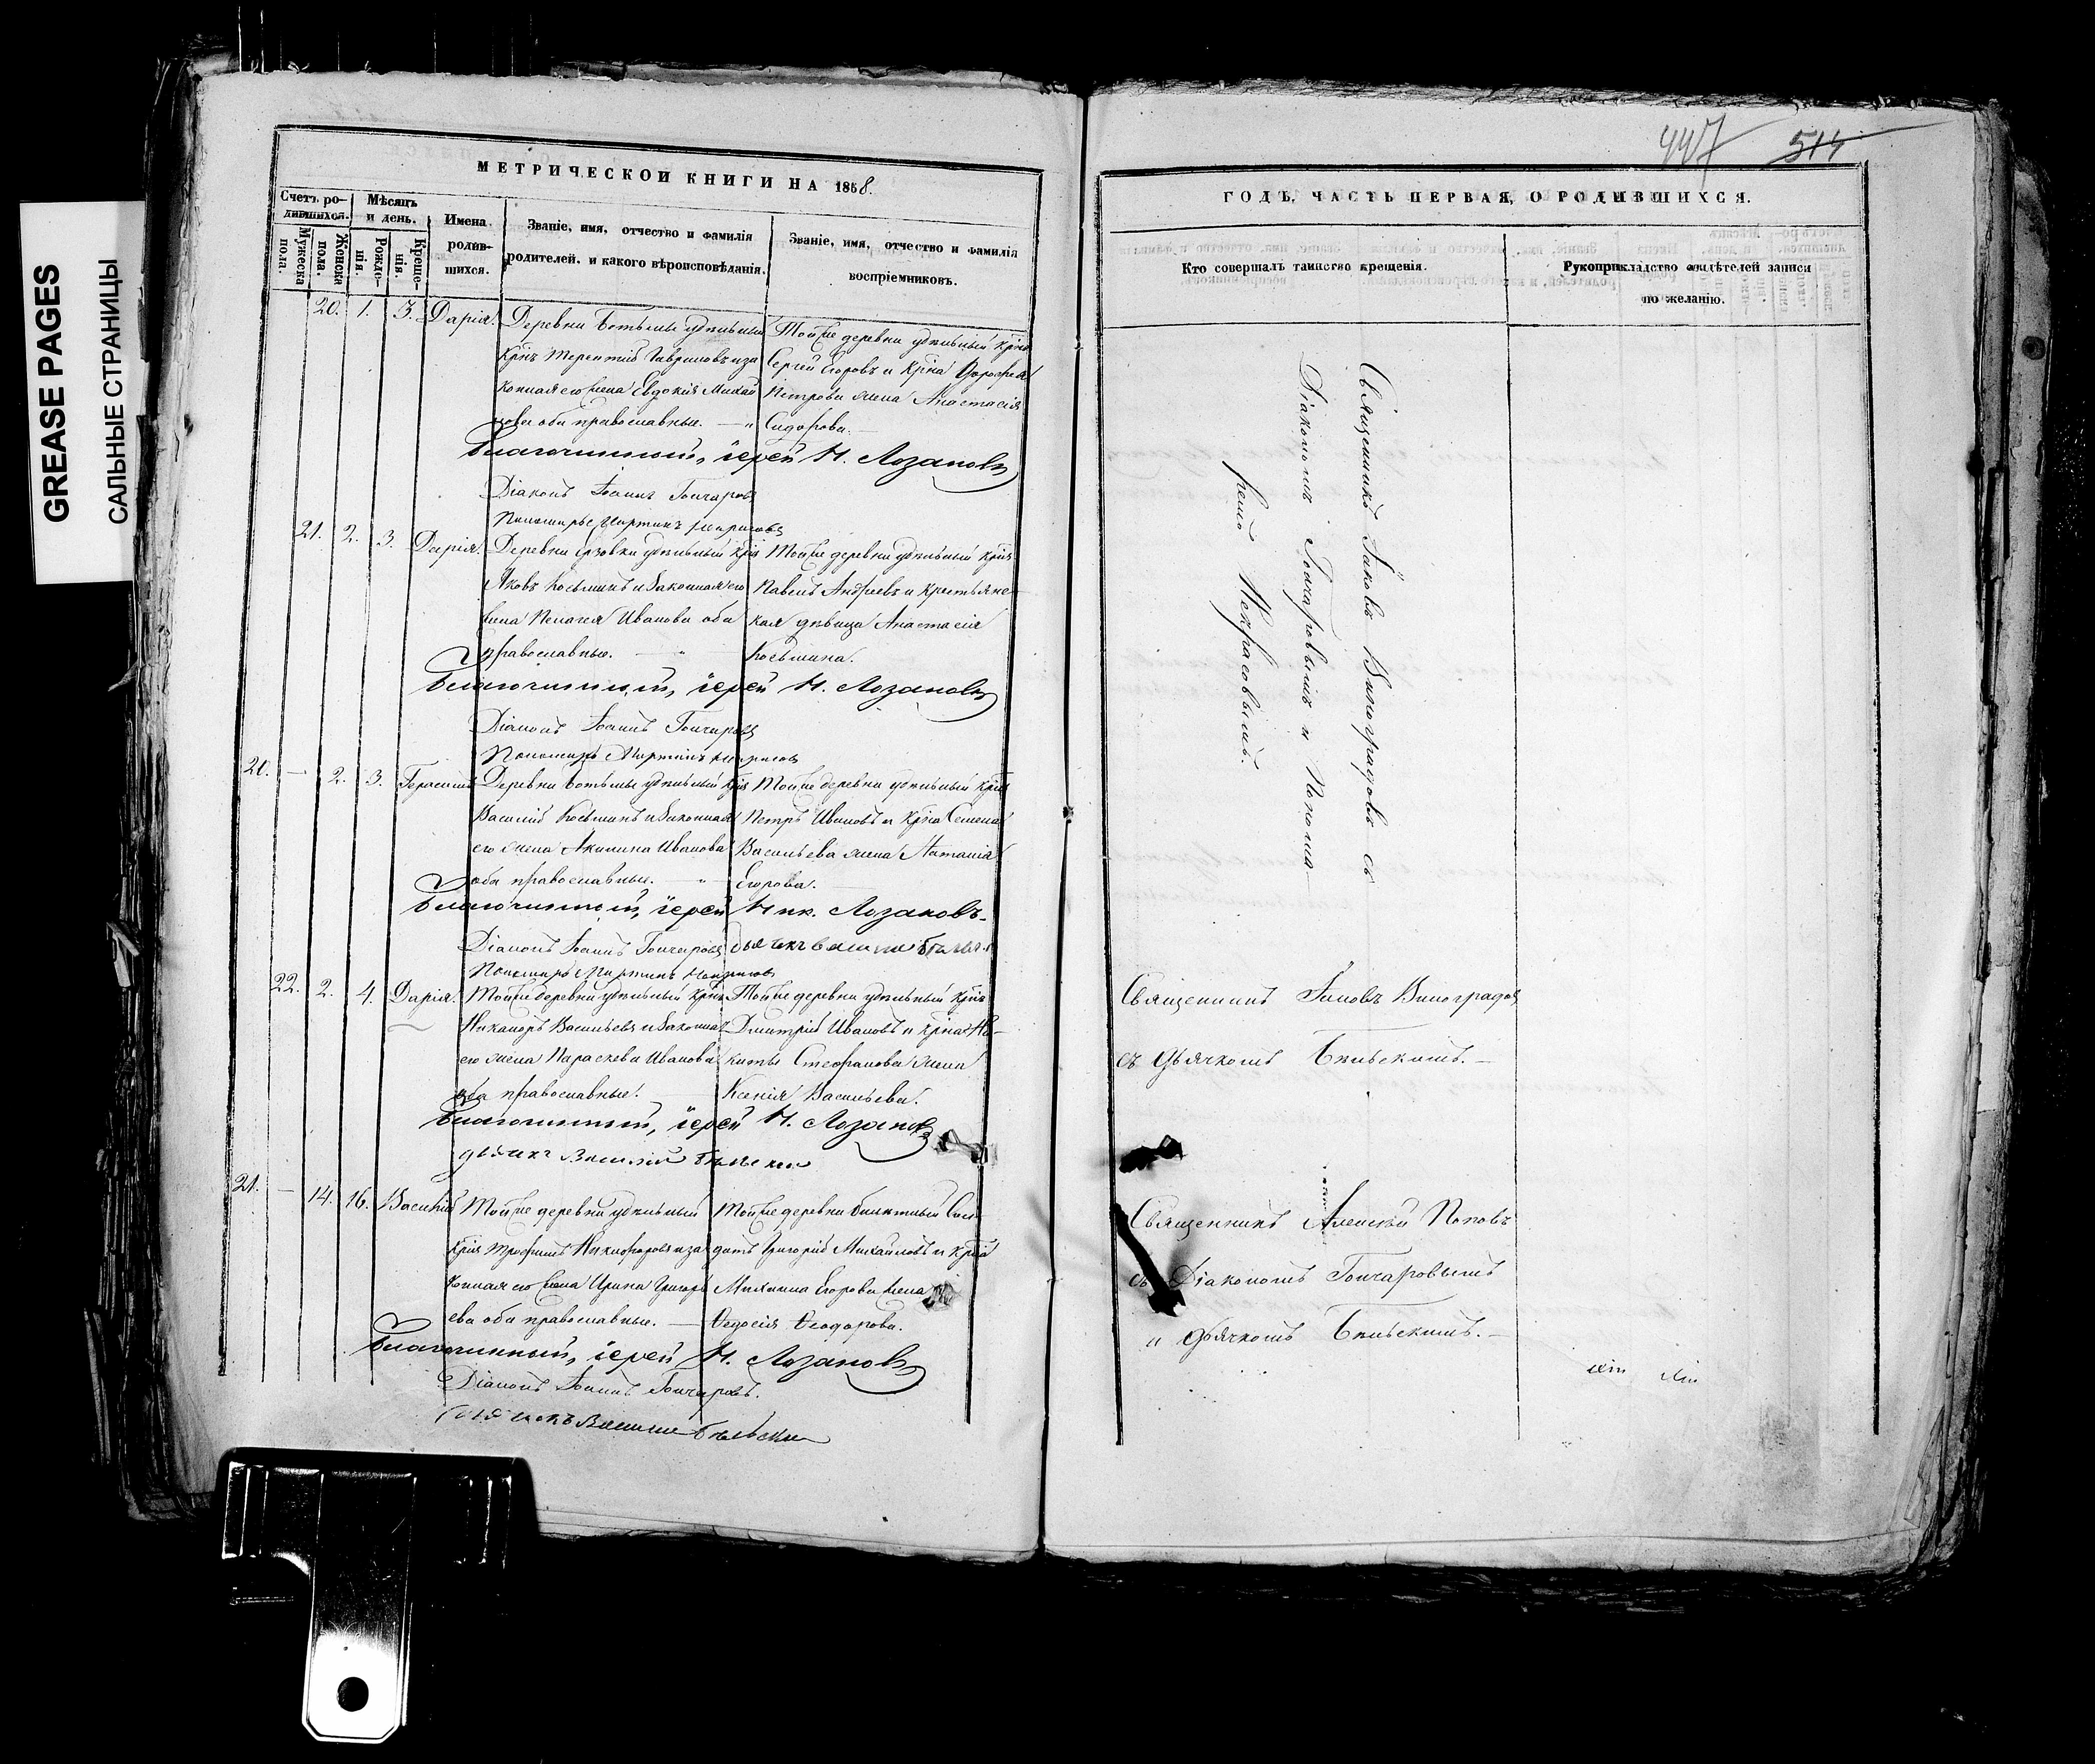 GREASE PAGES
САЛЬНЫЕ СТРАНИЦЫ
МЕТРИЧЕСКОЙ КНИГИ НА 1858.
Счетъ ро-
дившихся.
Мужеска
пола.
Женска
пола.
Мѣсяцъ
и день.
Рожде-
нія.
Креще-
нія.
Имена
родив-
шихся.
Званіе, имя, отчество и фамилія
родителей. и какого вѣроисповѣданія.
Званіе, имя, отчество и фамилія
воспріемниковъ.
20. 1. 3. Дарія. Деревни удѣльный Тойже деревни удѣльный
Терентій Гавриловъ и за Сергей Егоровъ и
конная его жена Евдокія Михай Петрова жена Анастасія
лова оба православные. Сидорова.
Благочинный, іерей Н. Лозановъ
Діаконъ Іоаннъ Гончаровъ
Пономарь Мартинъ
21. 2. 3. Дарія. Деревни удѣльный Тойже деревни удѣльный
Яковъ Косьминъ и законная его Павелъ Андреевъ и крестьянс
жена Пелагея Иванова оба кая дѣвица Анастасія
православные. Косьмина.
Благочинный, іерей Н. Лозановъ
Діаконъ Іоаннъ Гончаровъ
Пономарь Мартинъ
20. — 2. 3. Герасимъ Деревни удѣльный Тойже деревни удѣльный
Василій Косьминъ и законная Петръ Ивановъ и Семена
его жена Акилина Иванова Васильева жена Наталія
оба православные. Егорова.
Благочинный, іерей Ник. Лозановъ.
Діаконъ Іоаннъ Гончаровъ
Пономарь Мартинъ
22. 2. 4. Дарія. Тойже деревни удѣльный Тойже деревни удѣльный
Никаноръ Васильевъ и законная Дмитрій Ивановъ и Ни-
его жена Параскева Иванова киты Стефанова жена
оба православные. Ксенія Васильева.
Благочинный, іерей Н. Лозановъ
дьячекъ Василій Бѣльскій
21. — 14. 16. Василій Тойже деревни удѣльный Тойже деревни
Трофимъ Никифоровъ и за датъ Григорій Михайловъ и
конная его жена Ирина Григорь Михаила Егорова жена
ева оба православные. — Ѳедосія Ѳеодорова.
Благочинный, іерей Н. Лозановъ
Діаконъ Іоаннъ Гончаровъ.
дьячекъ Василій Бѣльскій
447 514
ГОДЪ, ЧАСТЬ ПЕРВАЯ, О РОДИВШИХСЯ.
Кто совершалъ таинство крещенія.
Рукоприкладство свидѣтелей записи
по желанію.
Священникъ Іаковъ Виноградовъ съ
Діакономъ Гончаровымъ и Понома
ремъ Некрасовымъ.
Священникъ Іаковъ Виноградовъ
съ Дьячкомъ Бѣльскимъ. —
Священникъ Алексѣй Поповъ
съ Діакономъ Гончаровымъ
и Дьячкомъ Бѣльскимъ. —